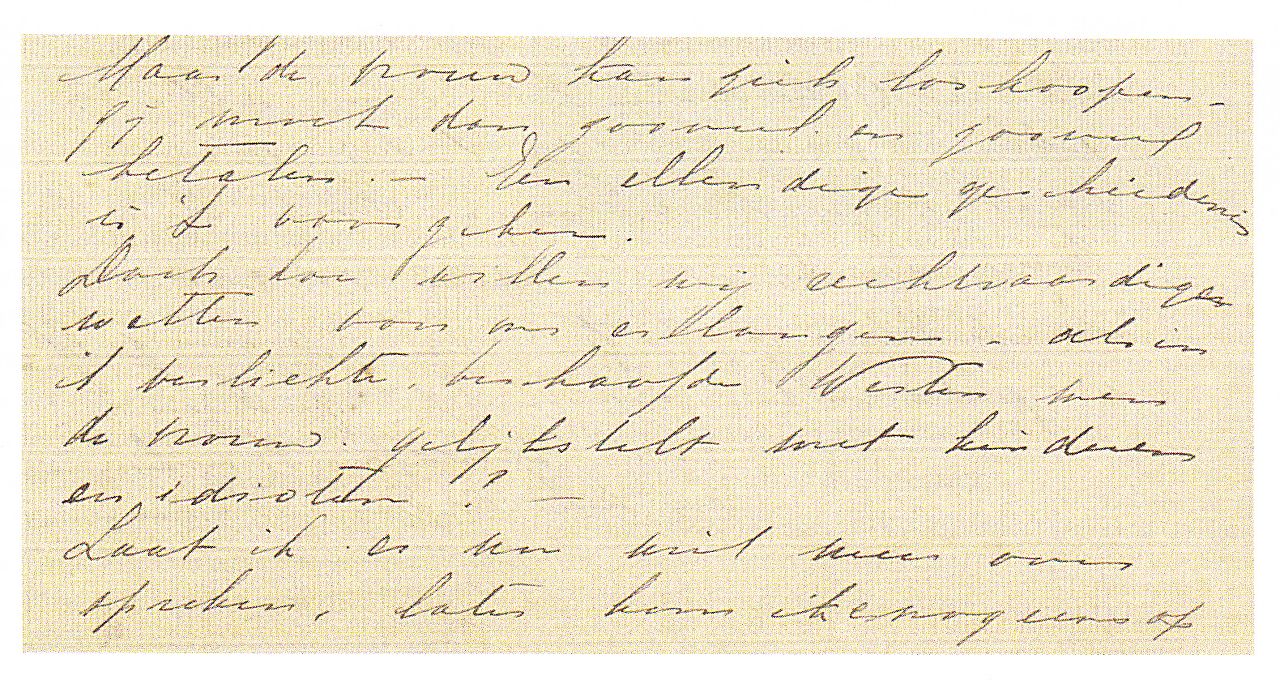 Maar de vrouw kan zich loskoopen -
Zij moet dan zooveel en zooveel
betalen. - Een ellendige geschiedenis
is 't voor haar.
Doch hoe willen wij rechtvaardige
wetten voor ons erlangen, als in
't verlichte, beschaafde Westen men
de vrouw gelijkstelt met kinderen
en idioten!? -
Laat ik er nu niet meer over
spreken, later kom ik er nog eens op